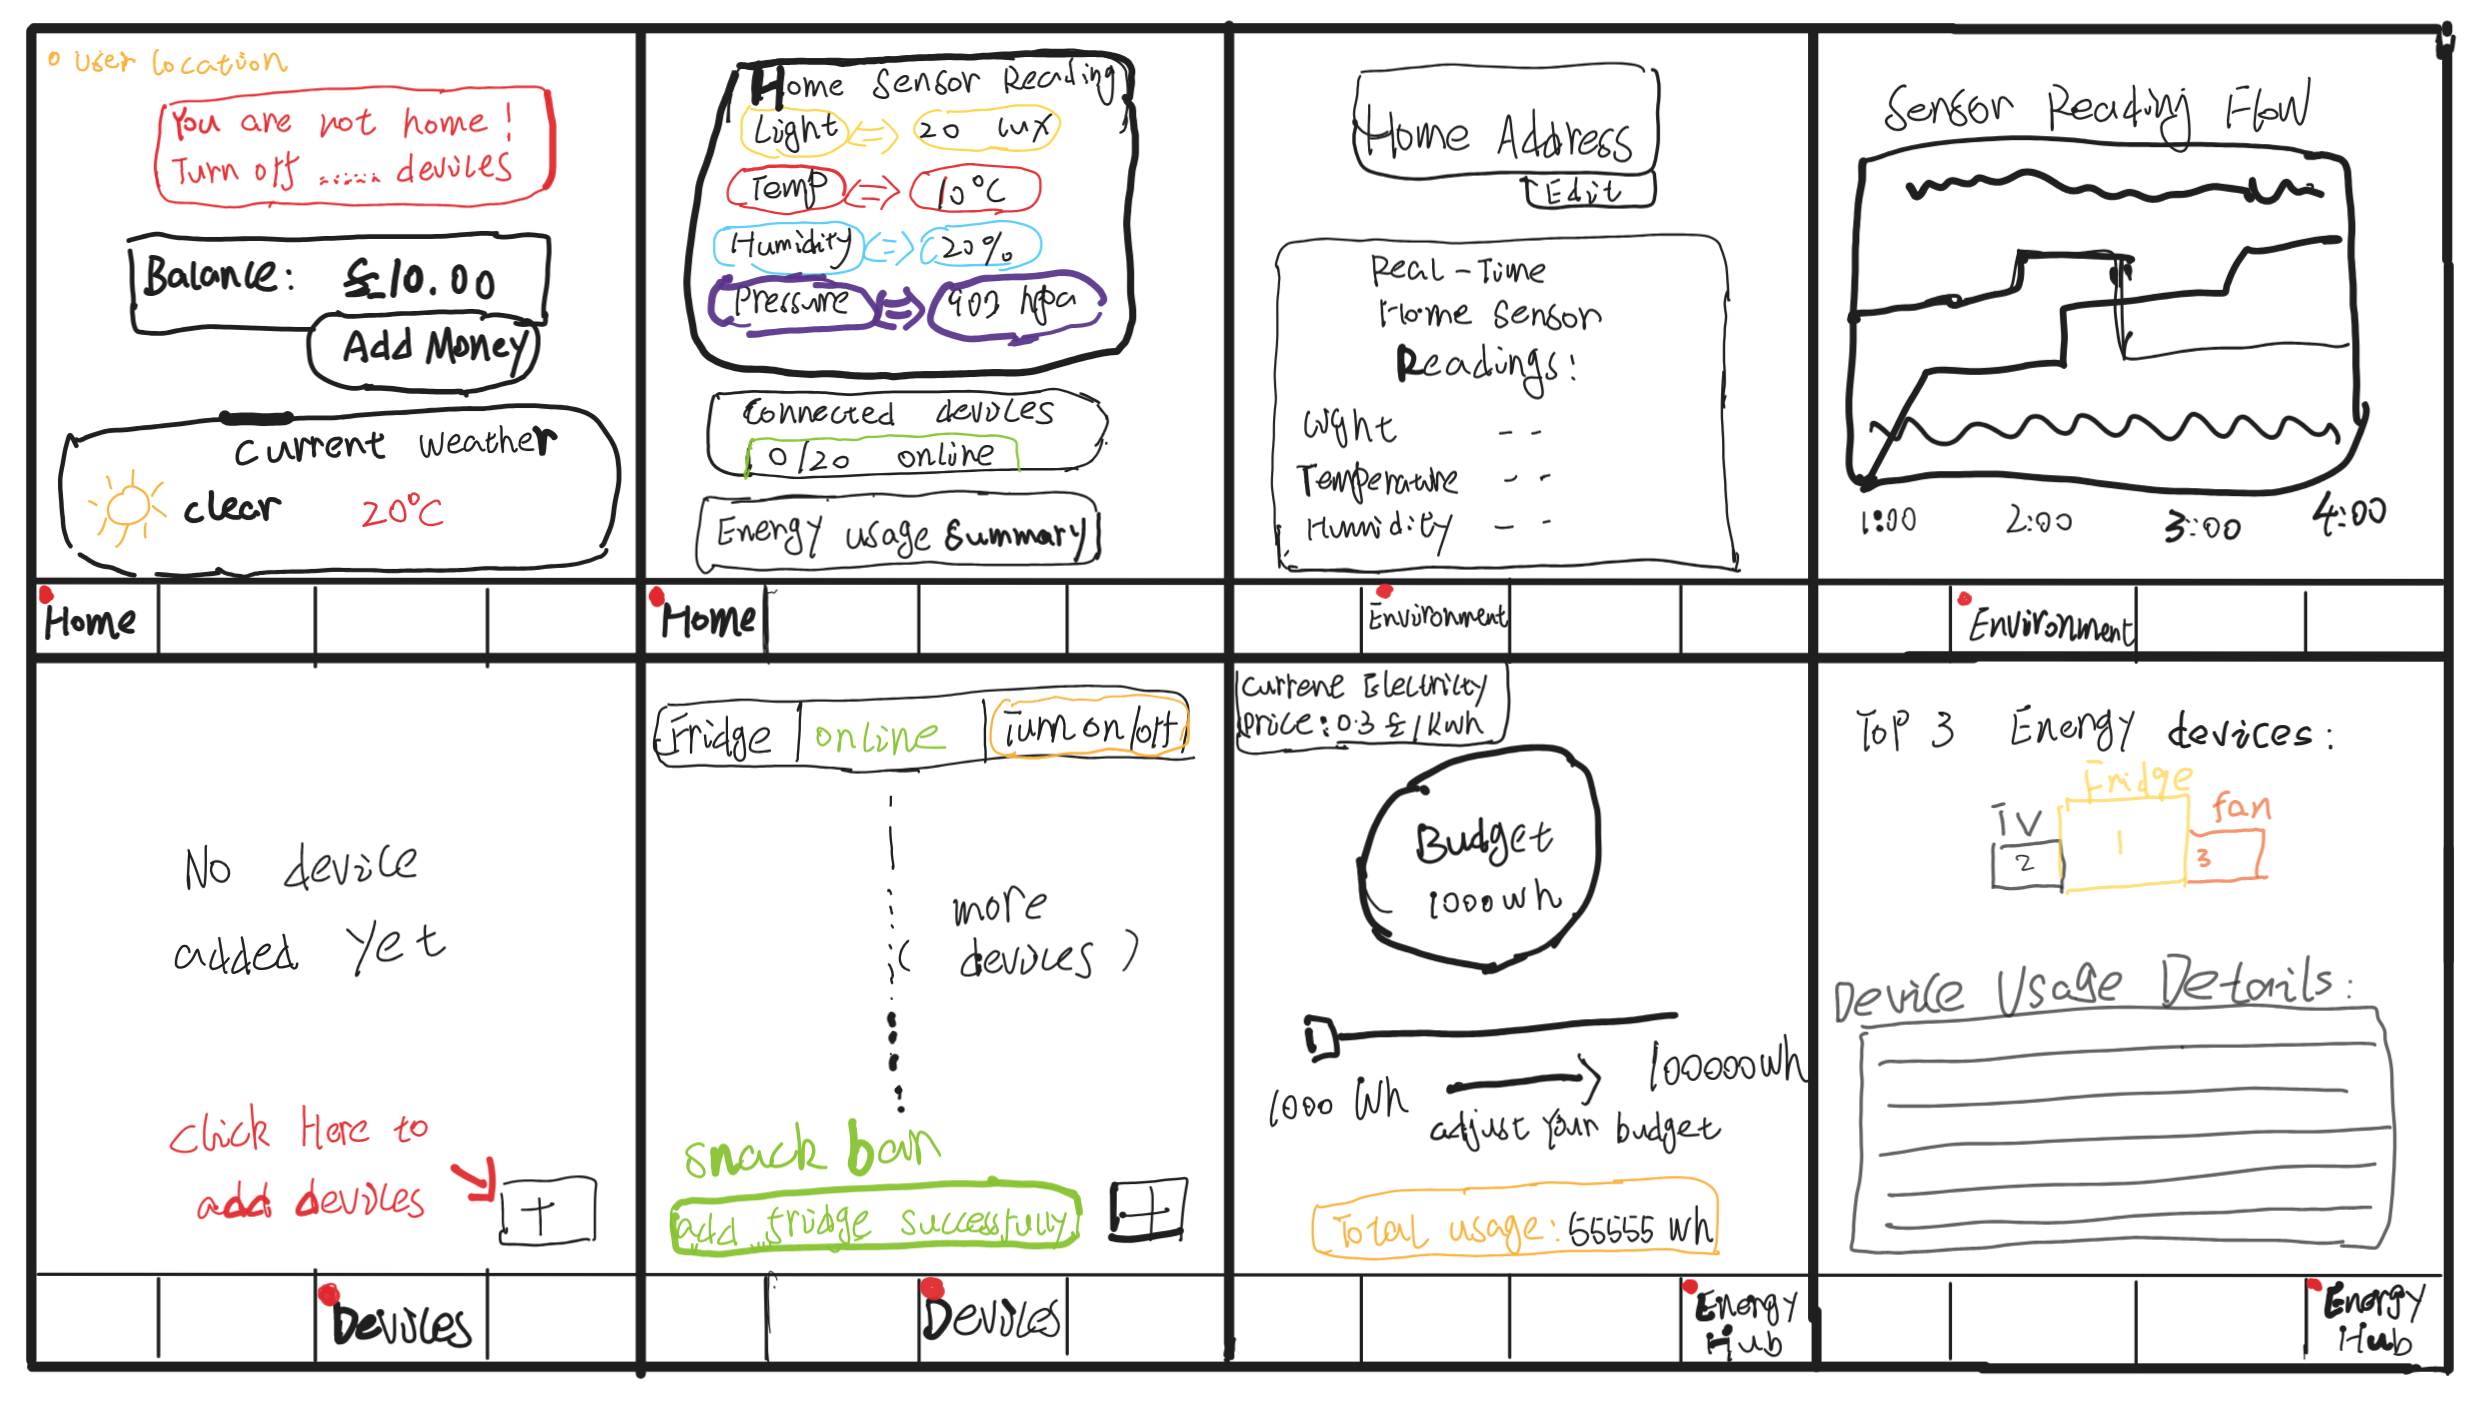 user location
You are not home!
Turn off ...... devices
Balance: £10.00
Add Money
Current weather
clear 20°C
Home
Home Sensor Reading
Light => 20 lux
Temp => 10°C
Humidity => 20%
Pressure => 903 hpa
Connected devices
0/20 online
Energy usage Summary
Home
Home Address
Edit
Real-Time
Home Sensor
Readings:
Light --
Temperature --
Humidity --
Environment
Sensor Reading Flow
1:00 2:00 3:00 4:00
Environment
No device
added yet
Click Here to
add devices
+
Devices
Fridge online Turn on/off
more
( devices )
snack bar
add fridge successfully
+
Devices
Current Electricity
price: 0.3 £/Kwh
Budget
1000 wh
1000 Wh 100000 wh
adjust your budget
Total usage: 55555 wh
Energy
Hub
Top 3 Energy devices:
TV Fridge fan
2 1 3
Device Usage Details:
Energy
Hub